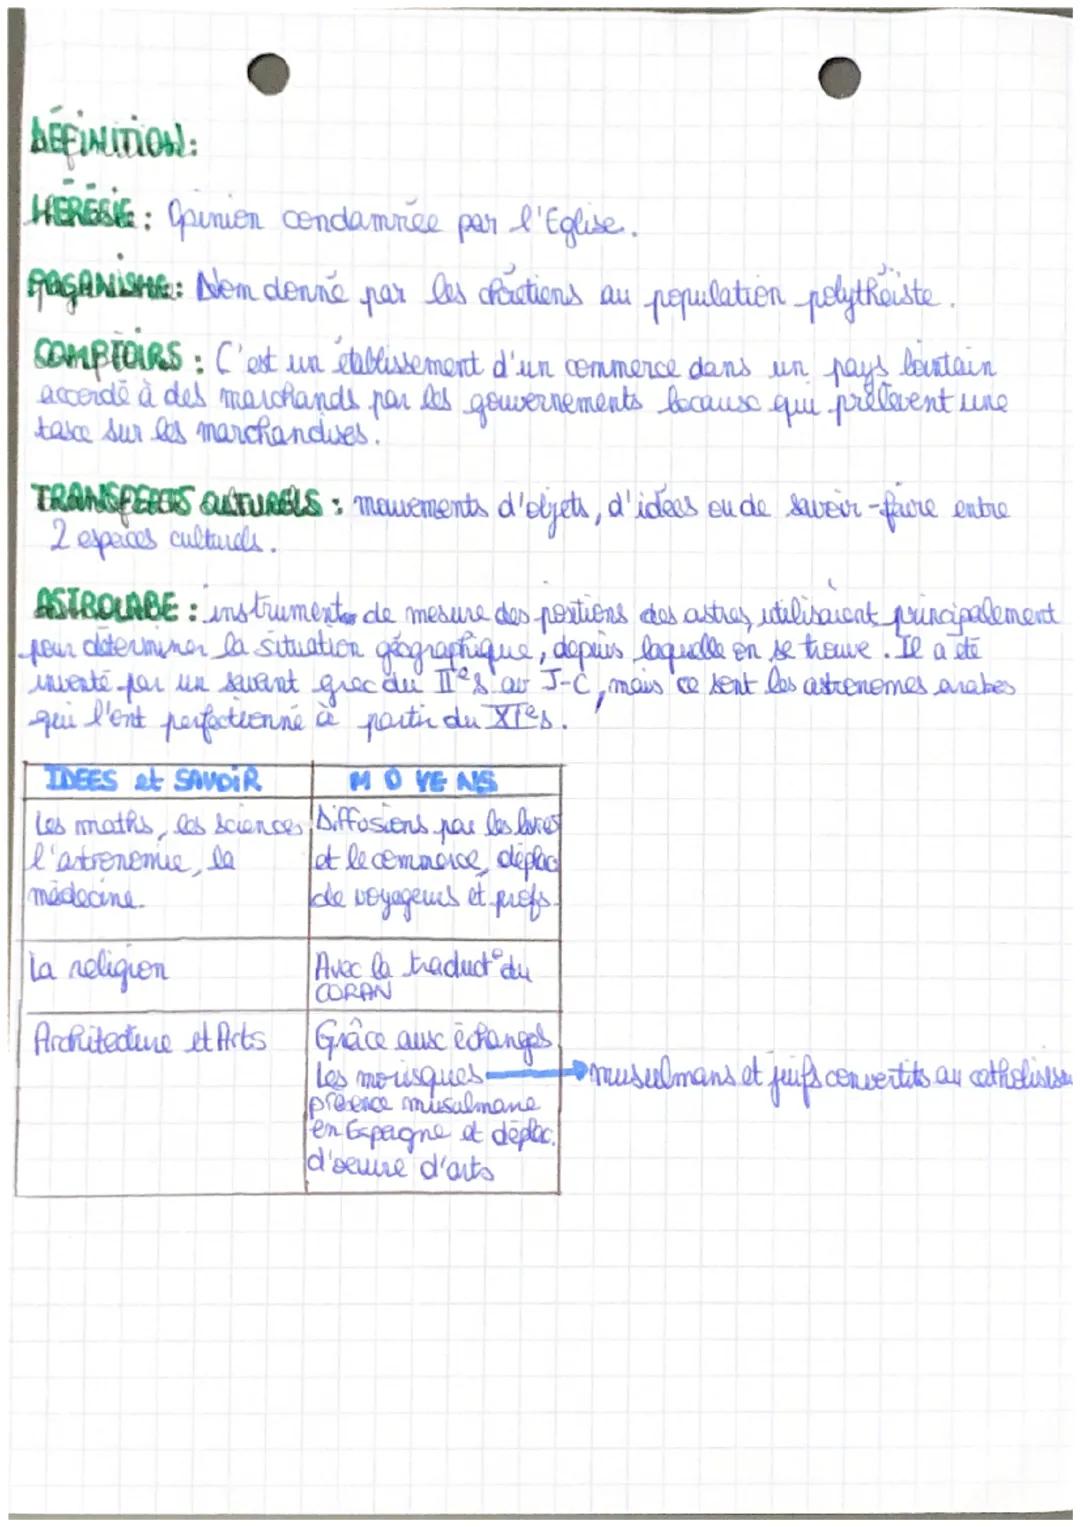 DÉFINITION:
HÉRÉSIE: Opinion condamnée par l'Eglise.
PAGANISME: Nom donné par les chrétiens au population polythéiste.
COMPTOIRS: C'est un établissement d'un commerce dans un pays lointain
accordé à des marchands par les gouvernements locause qui prélèvent une
taxe sur les marchandises.
TRANSFERTS CULTURELS: mouvements d'objets, d'idées ou de savoir-faire entre
2 espaces culturels.
ASTROLABE: instrument de mesure des positions des astres, utilisaient principalement
pour déterminer la situation géographique, depuis laquelle on se trouve. Il a été
inventé par un savant grec du IIe s av J-C, mais ce sont les astronomes arabes
qui l'ont perfectionné à partir du XIe s.
IDEES et SAVOIR
MOYENS
Les maths, les sciences,
l'astronomie, la
médecine.
Diffusions par les livres
et le commerce, déplac
de voyageurs et profs.
La religion
Avec la traduct° du
CORAN
Architecture et Arts
Grâce aux échanges
Les morisques → musulmans et juifs convertits au catholisisme
présence musulmane
en Espagne et déplac.
d'oeuvre d'arts